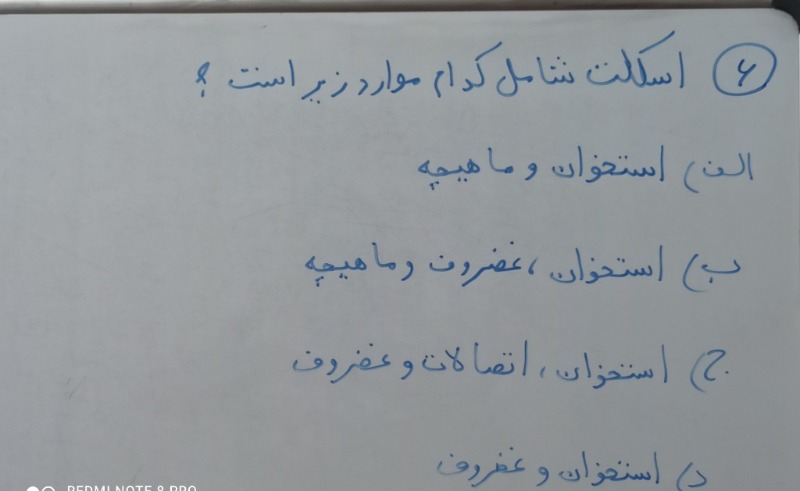 ۶ اسکلت شامل کدام موارد زیر است ؟
الف) استخوان و ماهیچه
ب) استخوان ، غضروف و ماهیچه
ج) استخوان ، اتصالات و غضروف
د) استخوان و غضروف
REDMI NOTE 8 PRO